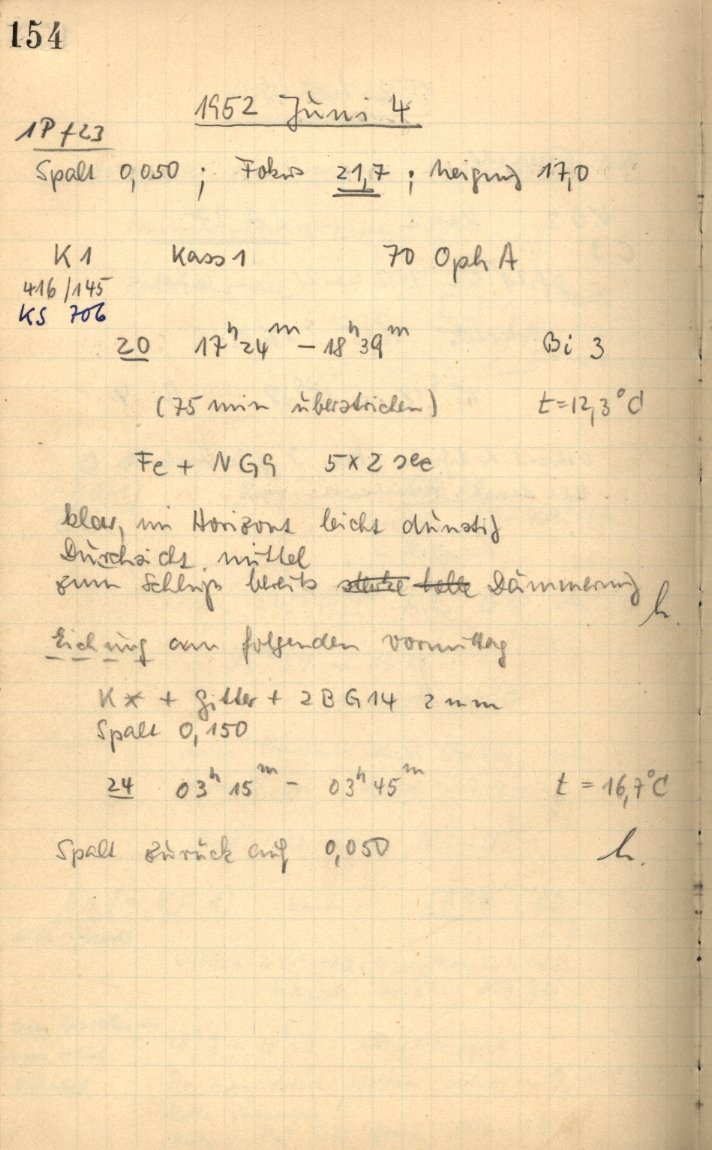 154
1952 Juni 4
1P f23
Spalt 0,050 ; Fokus 21,7 ; Neigung 17,0
K1 Kass 1 70 Oph A
416/145
KS 706
20 17ʰ24ᵐ – 18ʰ39ᵐ Bi 3
(75 min überstrichen) t=12,3°C
Fe + NG9 5x2 sec
klar, im Horizont leicht dunstig
Durchsicht mittel
zum Schluß bereits starke helle Dämmerung
h.
Eichung am folgenden Vormittag
K* + Gitter + 2BG14 2mm
Spalt 0,150
24 03ʰ15ᵐ – 03ʰ45ᵐ t = 16,7°C
Spalt zurück auf 0,050 h.